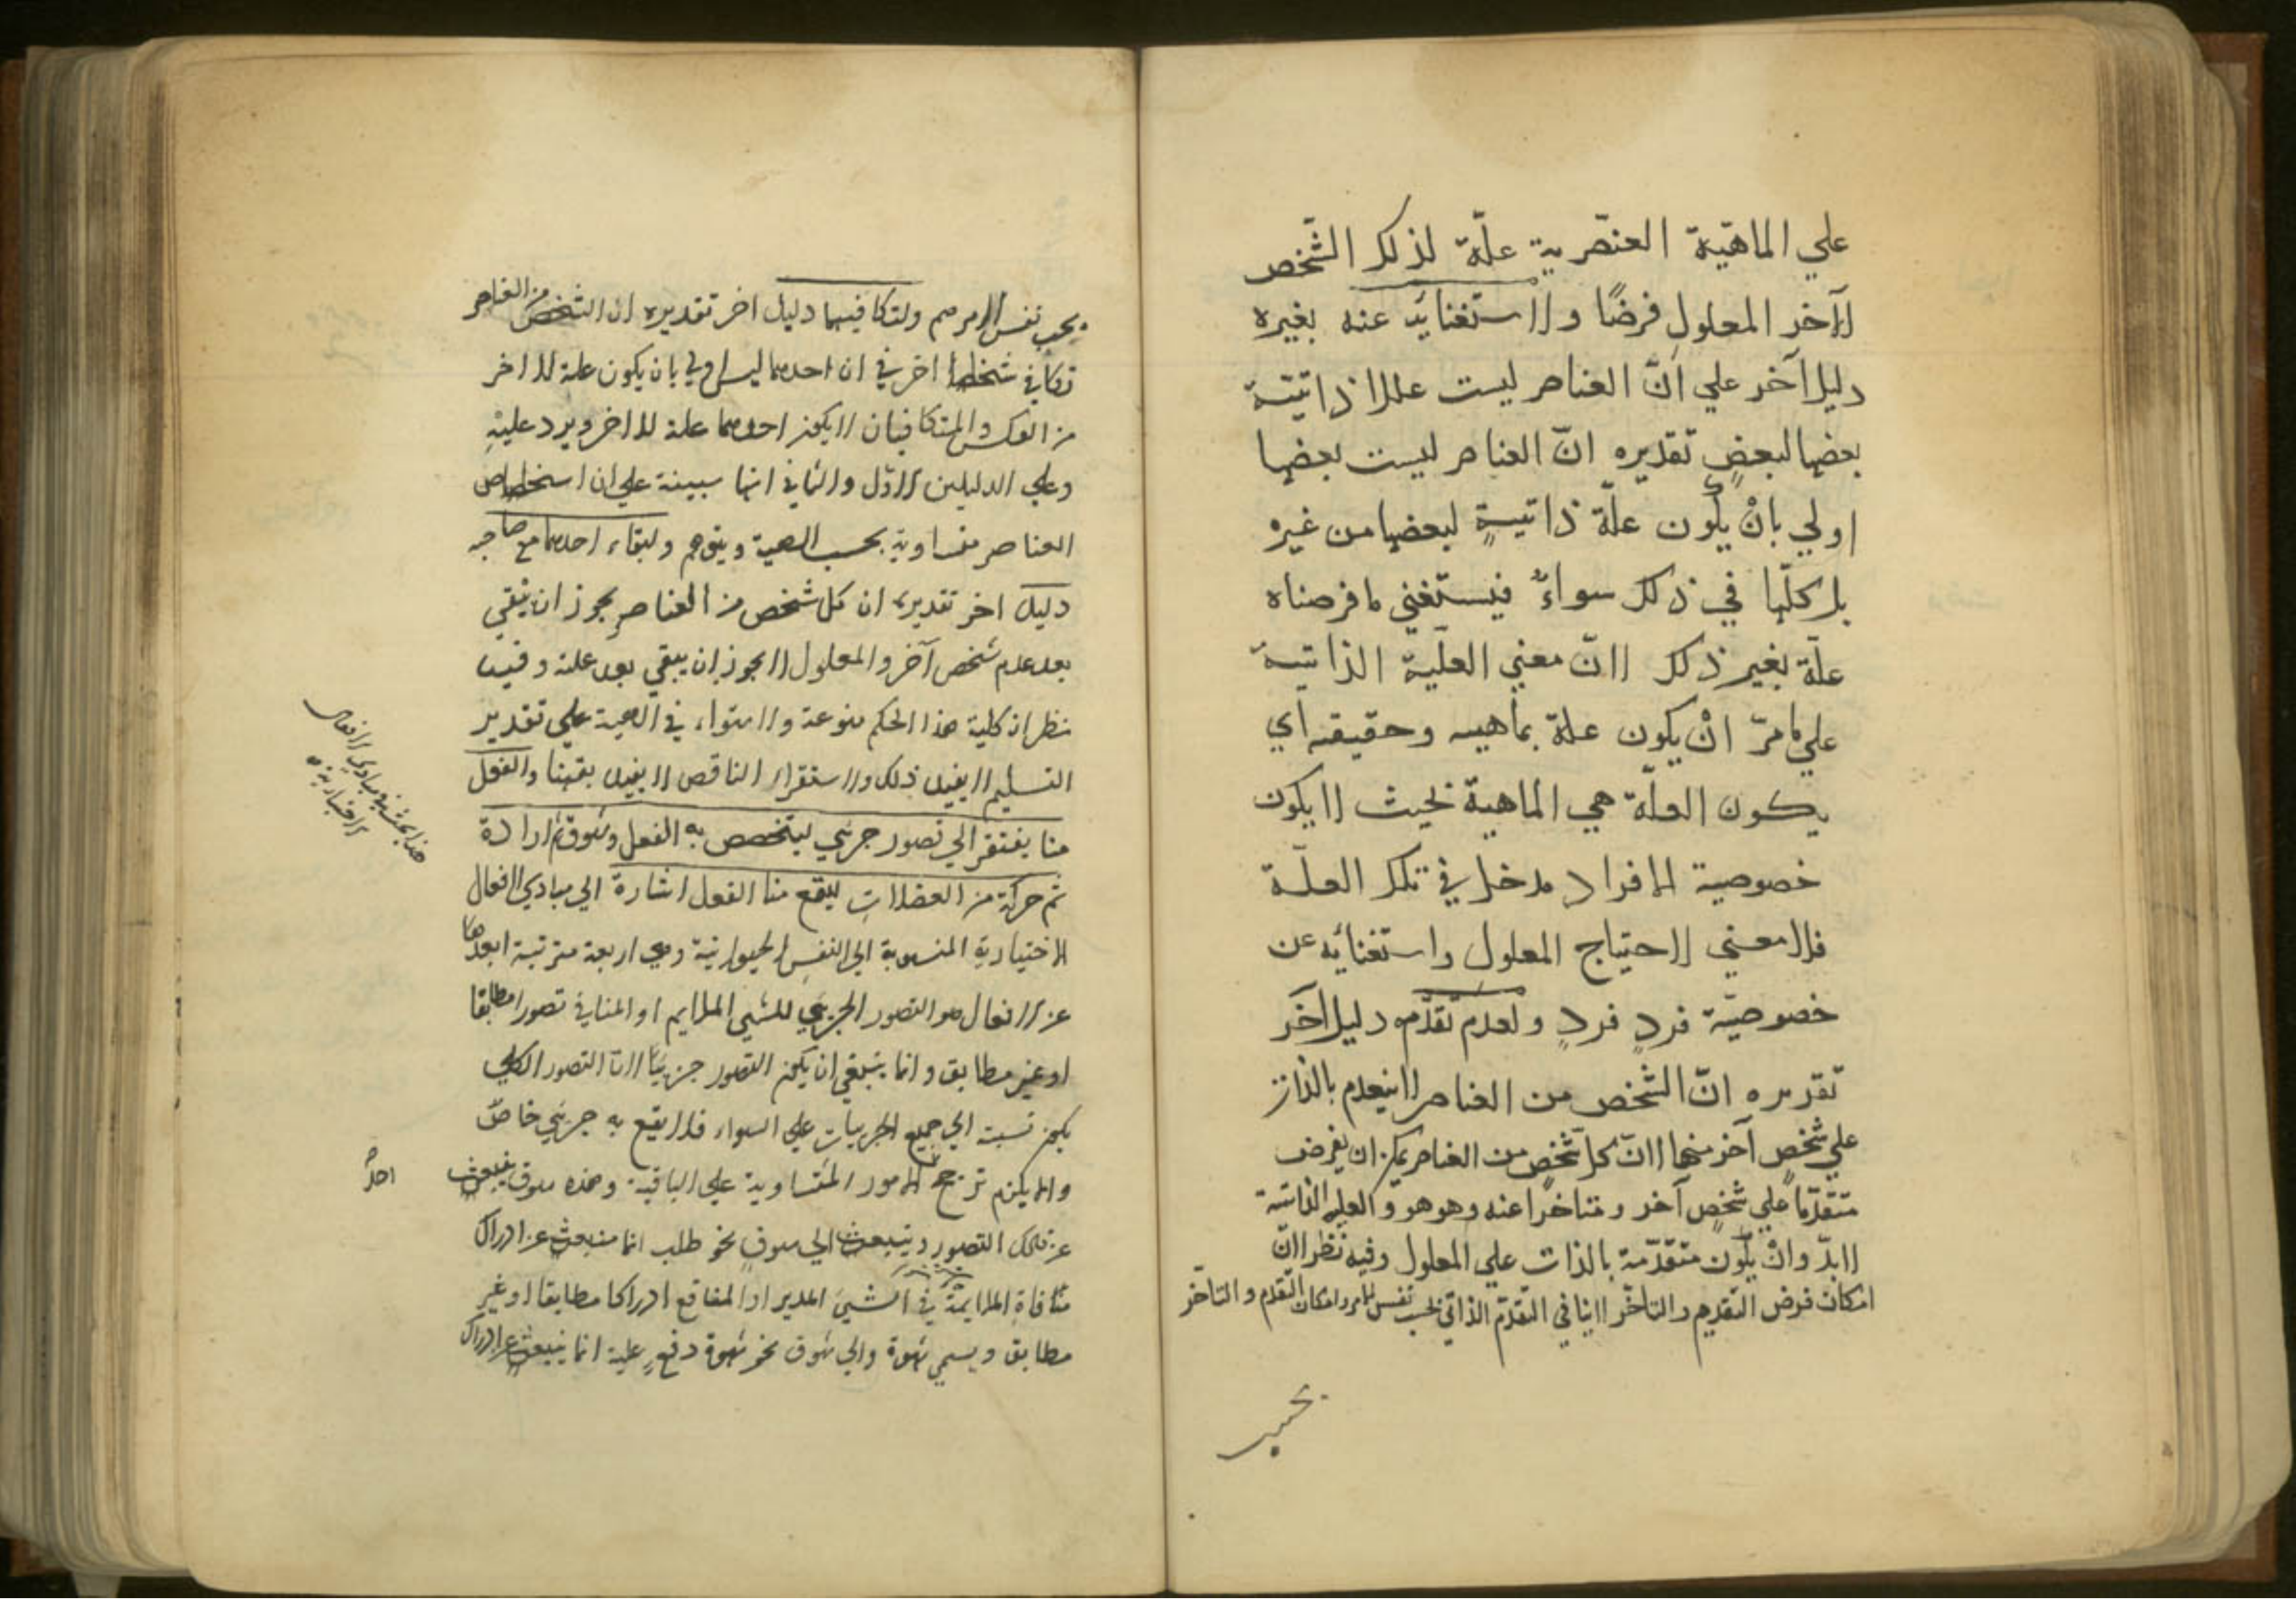 علي الماهيّة العنصرية علّة لذلك الشّخص
الآخر المعلول فرضًا ولاستغنائه عنه بغيره
دليل آخر علي انّ العناصر ليست عللا ذاتيّة
بعضها لبعضٍ تقديره انّ العناصر ليست بعضها
اولي بانْ يكون علّة ذاتيةٍ لبعضها من غيره
بل كلّها في ذلك سواءٌ فيستغني ما فرضناه
علّة بغير ذلك لانّ معني العلّية الذاتية
علي ما مرّ انْ يكون علة بماهيته وحقيقته اي
يكون العلّة هي الماهية بحيث لا يكون
خصوصية الافراد مدخل في تلك العلّة
فلا معني لاحتياج المعلول واستغنائه عن
خصوصيّة فردٍ فردٍ ولعدم تقدّمه دليل آخر
تقديره انّ الشّخص من العناصر لا يتقدم بالذات
علي شخصٍ آخر منها لانّ كل شّخصٍ من العناصر يمكن ان يفرض
متقدّما علي شخصٍ آخر ومتاخرا عنه وهو هو والعلة الذاتية
لا بدّ وانْ يكون متقدّمة بالذات علي المعلول وفيه نظر لانّ
امكان فرض التقديم والتاخّر لا ينافي التّقدّم الذاتي بحسب نفس الامر وامكان التّقدم والتاخّر
بحسب
بحسب نفس الامر مم ولتكافيهما دليل اخر تقديره ان الشخص من العناصر
تكافي شخصا اخر في ان احدهما ليس اولي بان يكون علة للاخر
من العكس والمتكافيان لا يكون احدهما علة للاخر ويرد عليهِ
وعلي الدليلين الاوّل والثاني انها مبينة علي ان اشخاص
العناصر متساوية بحسب الماهية وينوهم ولبقاء احدهما مع صاحبه
دليل اخر تقديره ان كل شخص من العناصر يجوز ان يبقي
بعد عدم شخص آخر والمعلول لا يجوز ان يبقي بعد علته وفيه
نظر ان كلية هذا الحكم ممنوعة والاستواء في الماهية علي تقدير
التسليم لا يفيد ذلك والاستقراء الناقص لا يفيد يقينا والفعل
منا يفتقر الي تصور جزيي ليتخصص به الفعل وشوق ثم ارادة
ثم حركة من العضلات ليقع منا الفعل اشارة الي مبادي الافعال
الاختيارية المنسوبة الي النفس الحيوانية وهي اربعة مترتبة ابعدها
عن الافعال هو التصور الجزيي للشي الملايم او المنافي تصورا مطابقا
او غير مطابق وانما ينبغي ان يكون التصور جزييّا لانّ التصور الكلي
يكون نسبته الي جميع الجزييات علي السواء فلا يقع به جزيي خاصّ
والا يلزم ترجح الامور المتساوية علي الباقية وهذه شوق ينبعث
احدُ
عن ذلك التصور وينبعث الي شوقٍ نحو طلب انما منبعث عن ادراك
الملايمة في الشيي المديد او المنافع ادراكا مطابقا او غير
مطابق ويسمي شهوة والي شوق نحو شهوة دفعٍ علية انما ينبعث عن ادراك
هذا بحث في مبادي الافعال
الاختيارية